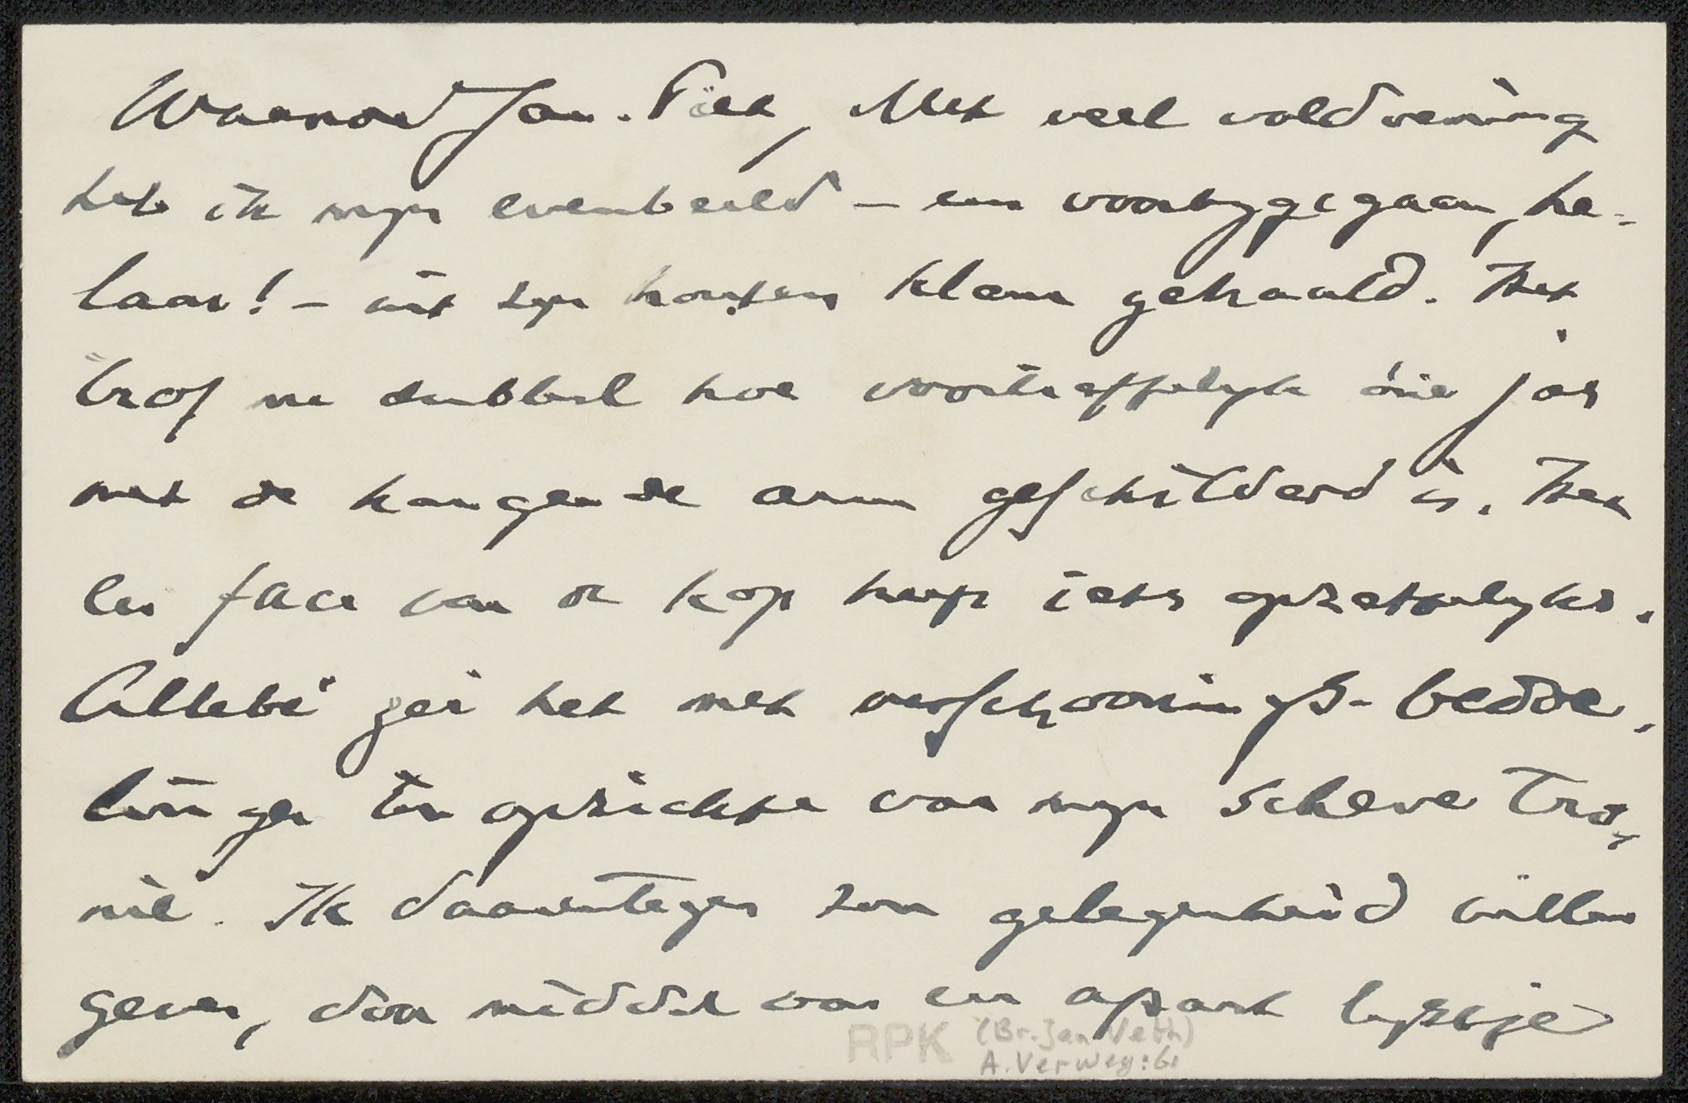 Waarde Jan-Piet, Met veel voldoening
heb ik mijn evenbeeld – een voorbygegaan, he-
laas! – uit zyn houten klem gehaald. Het
trof me dubbel hoe voortreffelyk die jas
met de hangende arm geschilderd is. Het
en face van de kop heeft iets opzettelyks.
Allebé zei het met verschoonings-bedoe-
lingen ten opzichte van myn scheve tro-
nie. Ik daarentegen zou gelegenheid willen
geven, door middel van een apart lystje
RPK (Br. Jan Veth)
A. Verwey: 61